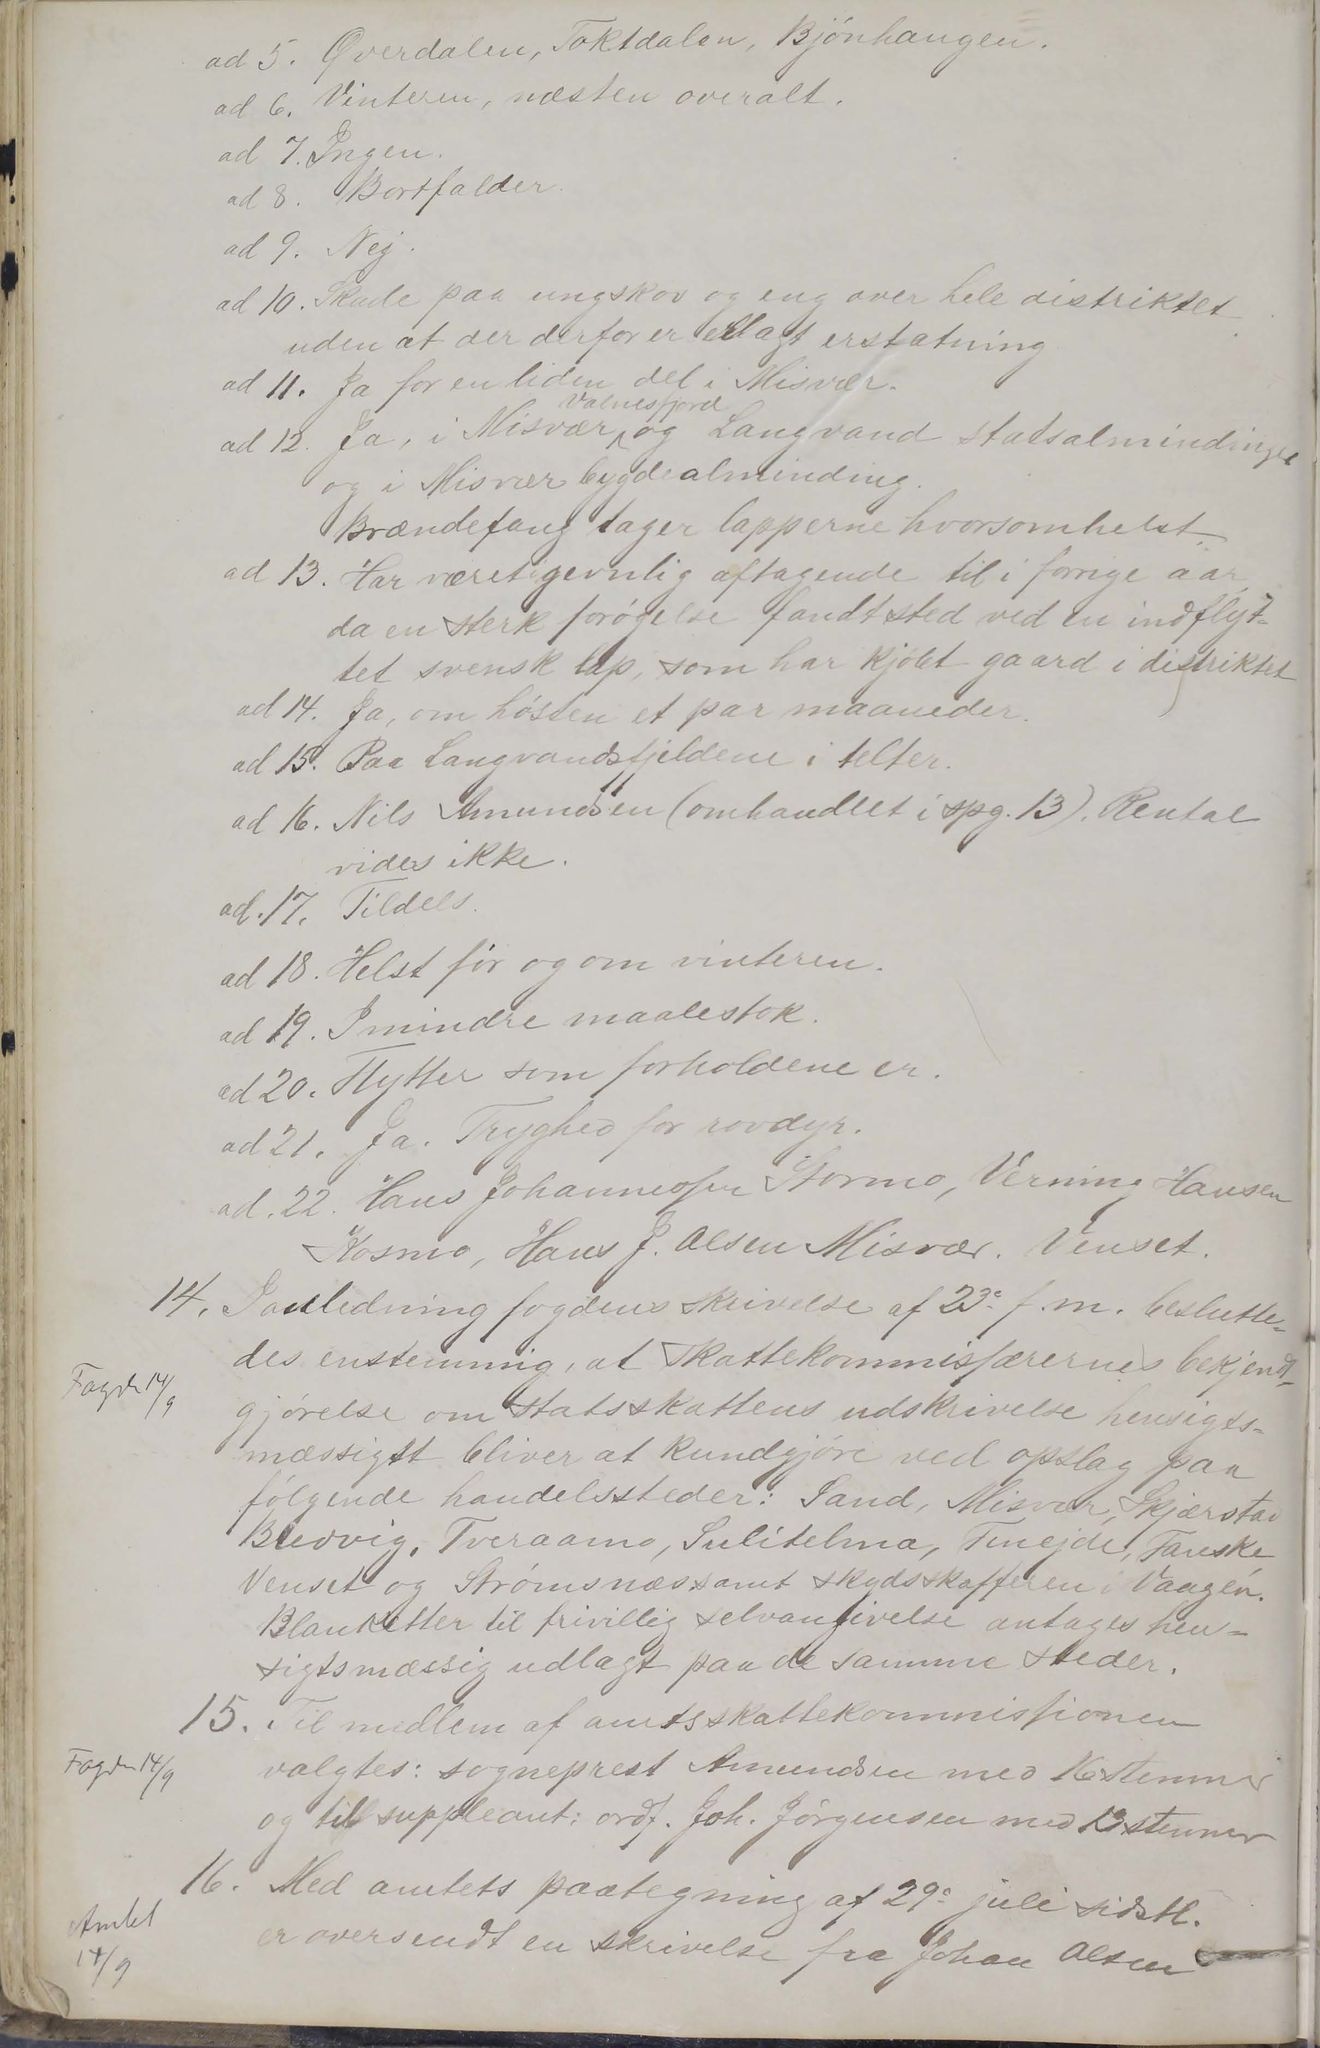 ad 5. Øverdalen, Toktdalen, Bjönhaugen.
ad 6. Vinteren, næsten overalt.
ad 7. Ingen.
ad 8. Bortfalder.
ad 9. Nej.
ad 10. Skade paa ungskov og eng over hele distriktet
uden at der derfor er erlagt erstatning
ad 11. Ja for en liden del i Misvær.
Valnesfjord
ad 12. Ja, i Misvær, og Langvand statsalmindinger
og i Misvær bygdealminding.
Brændefang tager lapperne hvorsomhelst.
ad 13. Har været jevnlig aftagende til i forrige aar
da en sterk forøgelse fandt sted ved en indflyt-
tet svensk lap, som har kjöbt gaard i distriktet
ad 14. Ja, om hösten et par maaneder.
ad 15. Paa Langvandsfjeldene i telter.
ad 16. Nils Amundsen (omhandlet i spg. 13). Rental
vides ikke.
ad. 17. Tildels.
ad 18. Helst för og om vinteren.
ad 19. I mindre maalestok.
ad 20. Flytter som forholdene er.
ad 21. Ja. Tryghed for rovdyr.
ad. 22. Hans Johannessen Stormo, Verning Hansen
Kosmo, Hans J. Olsen Misvær. Venset.
14. I anledning fogdens skrivelse af 23de f. m. beslutte-
des enstemmig, at skattekommissærernes bekjendt-
Fogden 14/9
gjörelse om statsskattens udskrivelse hensigts-
mæssigst bliver at kundgjöre ved opslag paa
fölgende handelssteder: Sand, Misvær, Skjærstad
Bredvig, Tveraamo, Sulitelma, Finejde, Fauske
Venset og Strømsnæs samt skydsskafferen i Vaagen.
Blanketter til frivillig selvangivelse antages hen-
sigtsmæssig udlagt paa de samme steder.
15. Til medlem af amtsskattekommissionen
Fogden 14/9
valgtes: sogneprest Amundsen med 16 stemmer
og till suppleant: ordf. Joh. Jörgensen med 13 stemmer
16. Med amtets paategning af 29de juli sidstl.
Amtet
14/9
er oversendt en skrivelse fra Johan Olsen